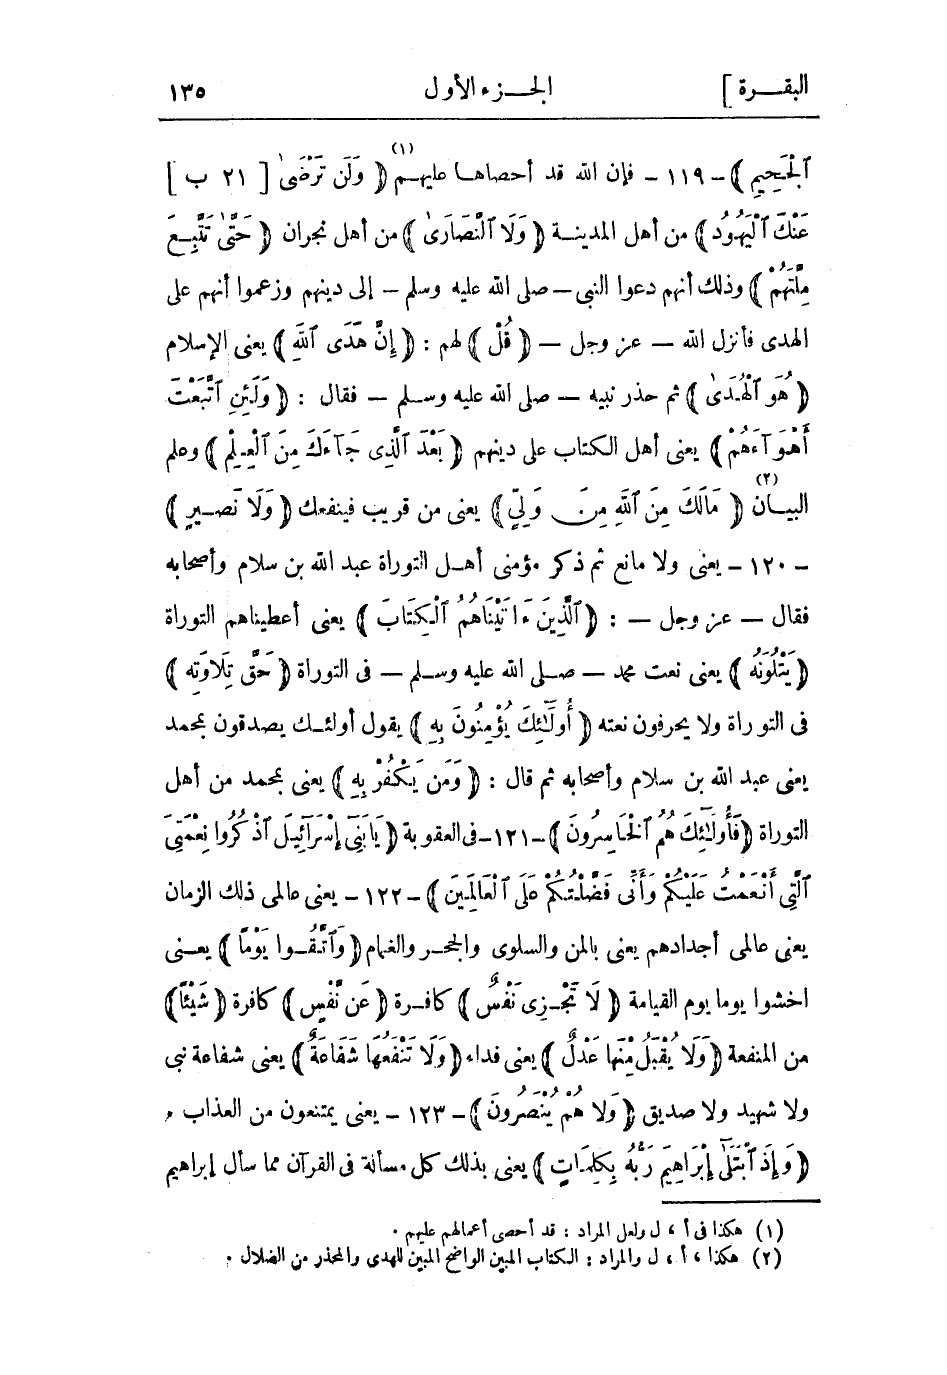 البقـــرة ]
الجـــزء الأول
١٣٥
ٱلْجَحِيمِ ﴾ – ١١٩ – فإن الله قد أحصاهـا عليهـم (١) ﴿ وَلَن تَرْضَىٰ [ ٢١ ب ]
عَنكَ ٱلْيَهُودُ ﴾ من أهل المدينــة ﴿ وَلَا ٱلنَّصَارَىٰ ﴾ من أهل نجران ﴿ حَتَّىٰ تَتَّبِعَ
مِلَّتَهُمْ ﴾ وذلك أنهم دعوا النبى – صلى الله عليه وسلم – إلى دينهم وزعموا أنهم على
الهدى فأنزل الله – عز وجل – ﴿ قُلْ ﴾ لهم : ﴿ إِنَّ هُدَى ٱللَّهِ ﴾ يعنى الإسلام
﴿ هُوَ ٱلْهُدَىٰ ﴾ ثم حذر نبيه – صلى الله عليه وسـلم – فقال : ﴿ وَلَئِنِ ٱتَّبَعْتَ
أَهْوَآءَهُمْ ﴾ يعنى أهل الكتاب على دينهم ﴿ بَعْدَ ٱلَّذِى جَآءَكَ مِنَ ٱلْعِلْمِ ﴾ وعلم
البيـان (٢) ﴿ مَالَكَ مِنَ ٱللَّهِ مِن وَلِيٍّ ﴾ يعنى من قريب فينفعك ﴿ وَلَا نَصِيرٍ ﴾
– ١٢٠ – يعنى ولا مانع ثم ذكر مؤمنى أهـل التوراة عبد الله بن سلام وأصحابه
فقال – عز وجل – : ﴿ ٱلَّذِينَ ءَاتَيْنَاهُمُ ٱلْكِتَابَ ﴾ يعنى أعطيناهم التوراة
﴿ يَتْلُونَهُ ﴾ يعنى نعت محمد – صـلى الله عليه وسـلم – فى التوراة ﴿ حَقَّ تِلَاوَتِهِ ﴾
فى التوراة ولا يحرفون نعته ﴿ أُولَـٰئِكَ يُؤْمِنُونَ بِهِ ﴾ يقول أولئـك يصدقون بمحمد
يعنى عبد الله بن سلام وأصحابه ثم قال : ﴿ وَمَن يَكْفُرْ بِهِ ﴾ يعنى بمحمد من أهل
التوراة ﴿ فَأُولَـٰئِكَ هُمُ ٱلْخَاسِرُونَ ﴾ – ١٢١ – فى العقوبة ﴿ يَابَنِىٓ إِسْرَآئِيلَ ٱذْكُرُوا نِعْمَتِىَ
ٱلَّتِى أَنْعَمْتُ عَلَيْكُمْ وَأَنِّى فَضَّلْتُكُمْ عَلَى ٱلْعَالَمِينَ ﴾ – ١٢٢ – يعنى عالمى ذلك الزمان
يعنى عالمى أجدادهم يعنى بالمن والسلوى والحجـر والغمام ﴿ وَٱتَّقُـوا يَوْمًا ﴾ يعـنى
اخشوا يوما يوم القيامة ﴿ لَا تَجْـزِى نَفْسٌ ﴾ كافـرة ﴿ عَن نَّفْسٍ ﴾ كافرة ﴿ شَيْئًا ﴾
من المنفعة ﴿ وَلَا يُقْبَلُ مِنْهَا عَدْلٌ ﴾ يعنى فداء ﴿ وَلَا تَنْفَعُهَا شَفَاعَةٌ ﴾ يعنى شفاعة نبى
ولا شهيد ولا صديق ﴿ وَلَا هُمْ يُنْصَرُونَ ﴾ – ١٢٣ – يعنى يمتنعون من العذاب ،
﴿ وَإِذِ ٱبْتَلَىٰٓ إِبْرَاهِيمَ رَبُّهُ بِكَلِمَاتٍ ﴾ يعنى بذلك كل مسألة فى القرآن مما سأل إبراهيم
(١) هكذا فى أ ، ل ولعل المراد : قد أحصى أعمالهم عليهم .
(٢) هكذا ، أ ، ل والمراد : الكتاب المبين الواضح المبين للهدى والمحذر من الضلال .